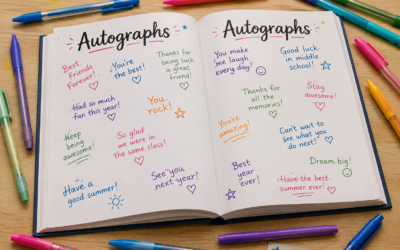 Autographs
Best
Friends
Forever!
You're
the best!
Thanks for
being such
a great
friend!
Had so much
fun this year!
You
rock!
Keep
being
awesome!
So glad
we were in
the same class!
Have a
good summer!
See you
next year!
Autographs
You make
me laugh
every day!
Good luck
in middle
school!
Thanks for
all the
memories!
Stay
awesome!
You're
amazing!
Can't wait to
see what you
do next!
Best
year
ever!
Dream big!
Have the best
summer ever!